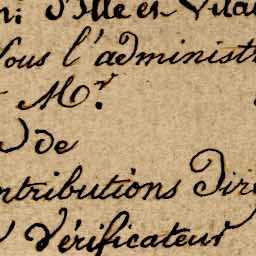 d'Ille et Vilai
Vous l'administ
Mr.
de
ntributions Dire
Vérificateur